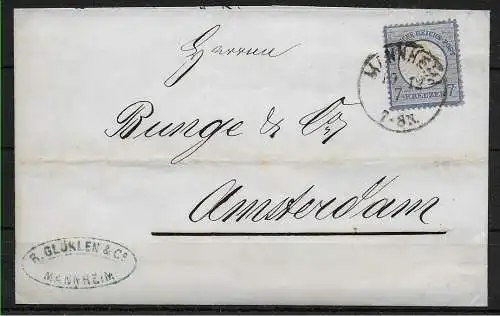 Herren
Bunge & Co
Amsterdam
DEUTSCHE REICHS-POST
7 KREUZER 7
MANNHEIM
7-8N.
R. GLÖKLEN & Co
MANNHEIM